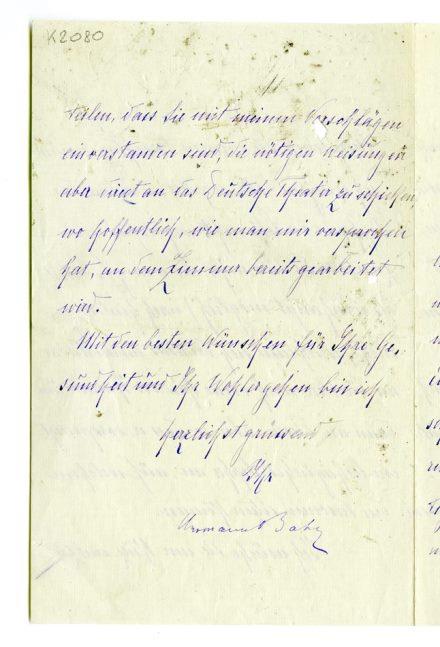 K2080
teilen, dass Sie mit meinen Vorschlägen
einverstanden sind, die nötigen Weisungen
aber direct an das Deutsche Theater zu schicken,
wo hoffentlich, wie man mir versprochen
hat, an dem Zimmer bereits gearbeitet
wird.
Mit den besten Wünschen für Ihre Ge-
sundheit und Ihr Wohlergehen bin ich
herzlichst grüssend
Ihr
Hermann Bahr